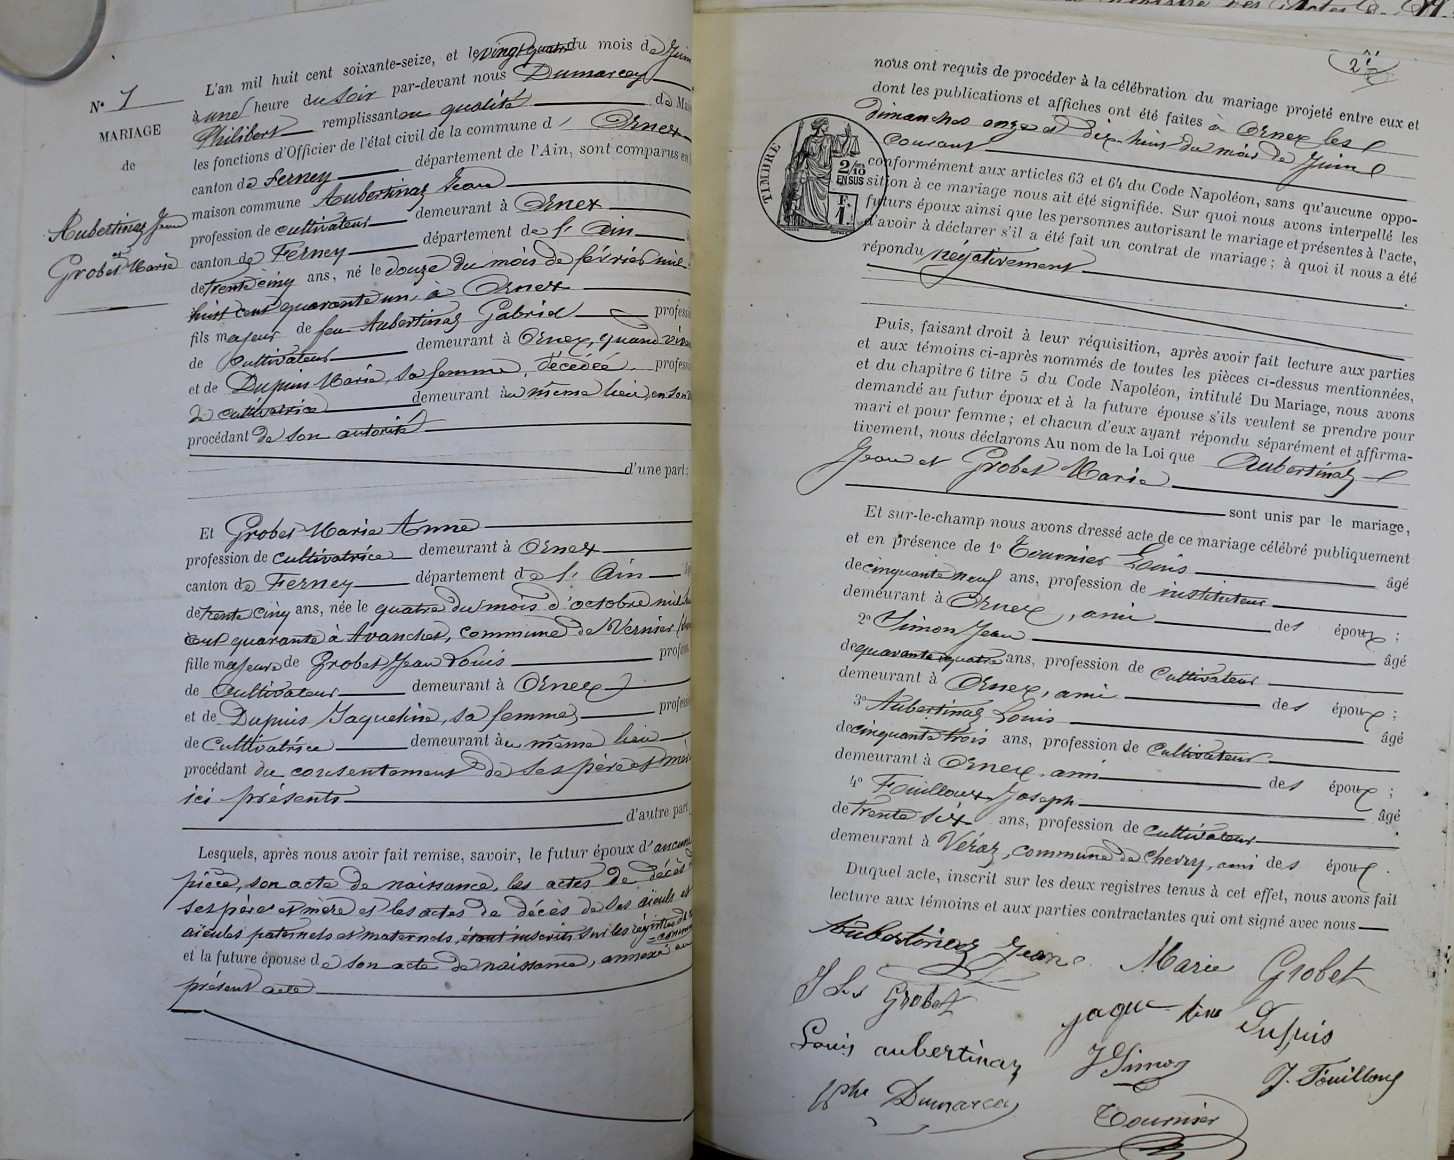 N° 7
MARIAGE
de
Aubertinaz Jean
et
Grobet Marie
L'an mil huit cent soixante-seize, et le vingt quatre du mois de Juin
à une heure du soir par-devant nous Dumarcey
Philibert remplissant en qualité de Mai
les fonctions d'Officier de l'état civil de la commune d' Ornex
canton de Ferney département de l'Ain, sont comparus en
maison commune Aubertinaz Jean
profession de cultivateur demeurant à Ornex
canton de Ferney département de l'Ain
de trente cinq ans, né le douze du mois de février mil
huit cent quarante un, à Ornex
fils majeur de feu Aubertinaz Gabriel professi
de cultivateur demeurant à Ornex, quand viv
et de Dupuis Marie, sa femme, décédée professi
de cultivatrice demeurant au même lieu, en son
procédant de son autorité
d'une part;
Et Grobet Marie Anne
profession de cultivatrice demeurant à Ornex
canton de Ferney département de l'Ain
de trente cinq ans, née le quatre du mois d'octobre mil
cent quarante à Avanchet, commune de Vernier
fille majeure de Grobet Jean Louis profess
de cultivateur demeurant à Ornex
et de Dupuis Jaqueline, sa femme, professi
de cultivatrice demeurant au même lieu
procédant du consentement de ses père et mère
ici présents
d'autre part
Lesquels, après nous avoir fait remise, savoir, le futur époux d'aucune
pièce, son acte de naissance, les actes de décès
ses père et mère et les actes de décès de ses aïeuls et
aïeules paternels et maternels, étant inscrits sur les registres de
commune
et la future épouse de son acte de naissance, annexé au
présent acte
2
nous ont requis de procéder à la célébration du mariage projeté entre eux et
dont les publications et affiches ont été faites à Ornex les
dimanches onze et dix-huit du mois de Juin
courant
TIMBRE
2/10
EN SUS
1F.
conformément aux articles 63 et 64 du Code Napoléon, sans qu'aucune oppo-
sition à ce mariage nous ait été signifiée. Sur quoi nous avons interpellé les
futurs époux ainsi que les personnes autorisant le mariage et présentes à l'acte,
d'avoir à déclarer s'il a été fait un contrat de mariage; à quoi il nous a été
répondu négativement
Puis, faisant droit à leur réquisition, après avoir fait lecture aux parties
et aux témoins ci-après nommés de toutes les pièces ci-dessus mentionnées,
et du chapitre 6 titre 5 du Code Napoléon, intitulé Du Mariage, nous avons
demandé au futur époux et à la future épouse s'ils veulent se prendre pour
mari et pour femme; et chacun d'eux ayant répondu séparément et affirma-
tivement, nous déclarons Au nom de la Loi que Aubertinaz
Jean et Grobet Marie
sont unis par le mariage,
Et sur-le-champ nous avons dressé acte de ce mariage célébré publiquement
et en présence de 1° Tournier Louis âgé
de cinquante neuf ans, profession de instituteur
demeurant à Ornex, ami des époux;
2° Simon Jean âgé
de quarante quatre ans, profession de cultivateur
demeurant à Ornex, ami des époux;
3° Aubertinaz Louis âgé
de cinquante trois ans, profession de cultivateur
demeurant à Ornex, ami des époux;
4° Fouilloux Joseph âgé
de trente six ans, profession de cultivateur
demeurant à Véraz, commune de Chevry, ami des époux.
Duquel acte, inscrit sur les deux registres tenus à cet effet, nous avons fait
lecture aux témoins et aux parties contractantes qui ont signé avec nous
Aubertinaz Jean Marie Grobet
J Ls Grobet jaqueline Dupuis
Louis aubertinaz J Simon J. Fouilloux
Phte Dumarcey Tournier